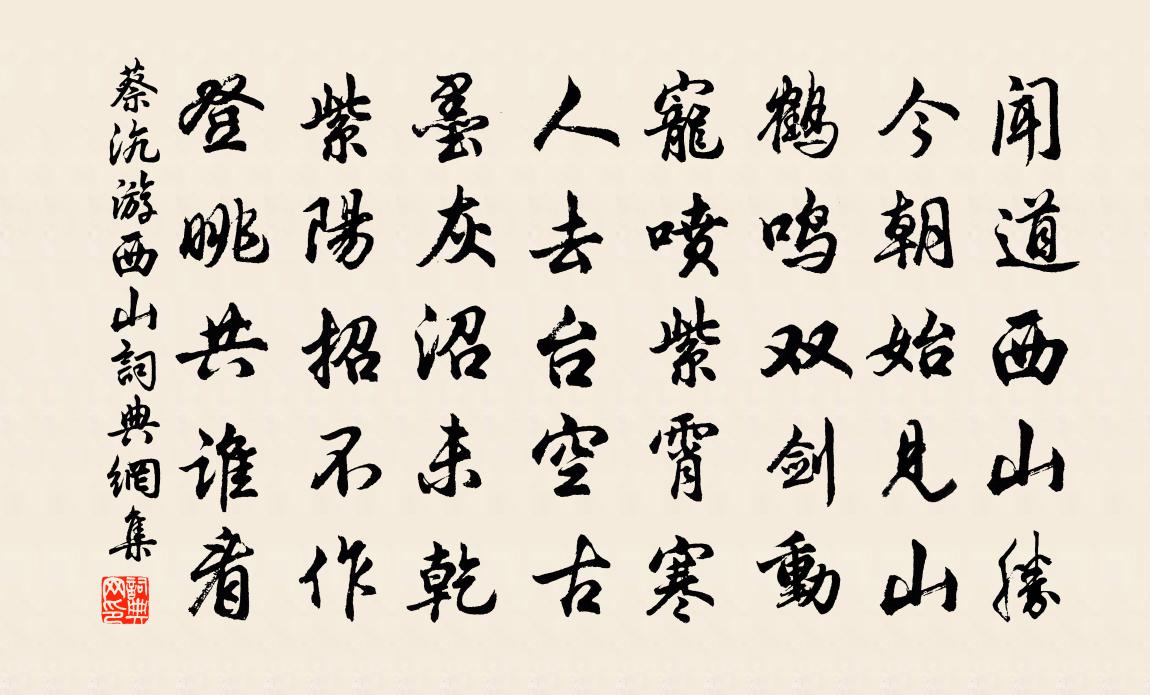 闻道西山勝
今朝始见山
鹤鸣双剑動
寵喷紫霄寒
人去台空古
墨灰沼未乾
紫陽招不作
登眺共谁看
蔡沉游西山詞典網集
詞典网印